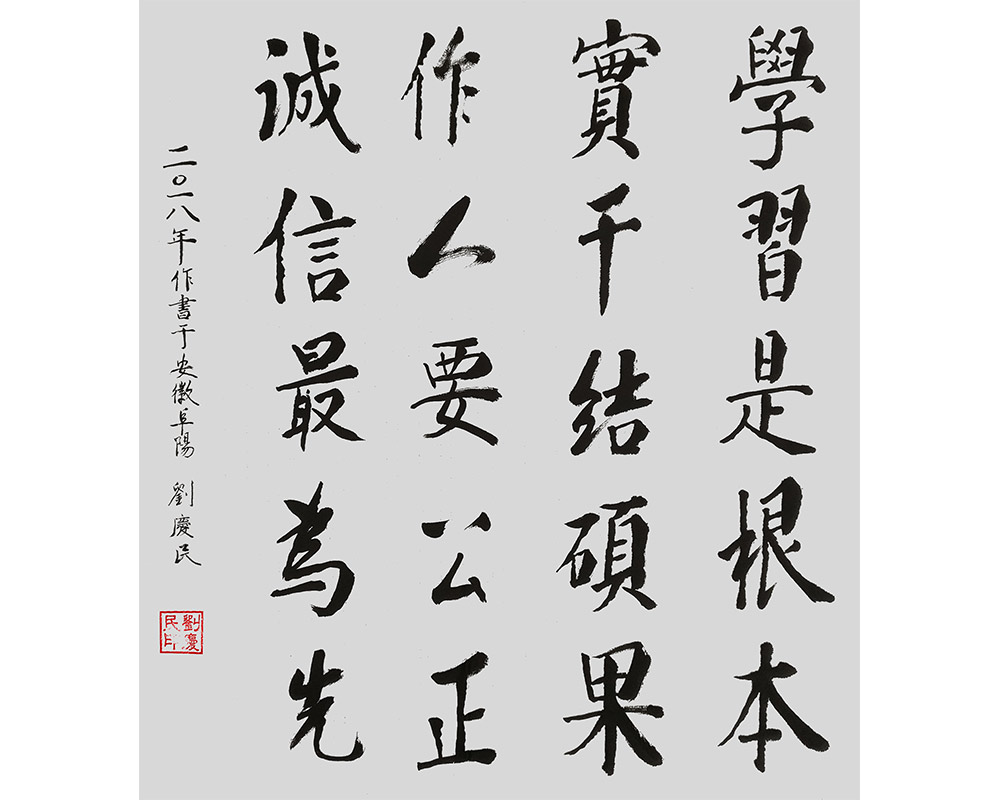 學習是根本
實干結碩果
作人要公正
誠信最為先
二〇一八年作書于安徽阜陽 劉慶民
劉慶民印